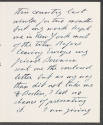 this country last
winter for two months
but my work kept
me in New York most
of the time. Before
leaving
friend
sent me the enclosed
letter but as my work
then did not take me
to Boston, I had no
chance of presenting
it. I am giving